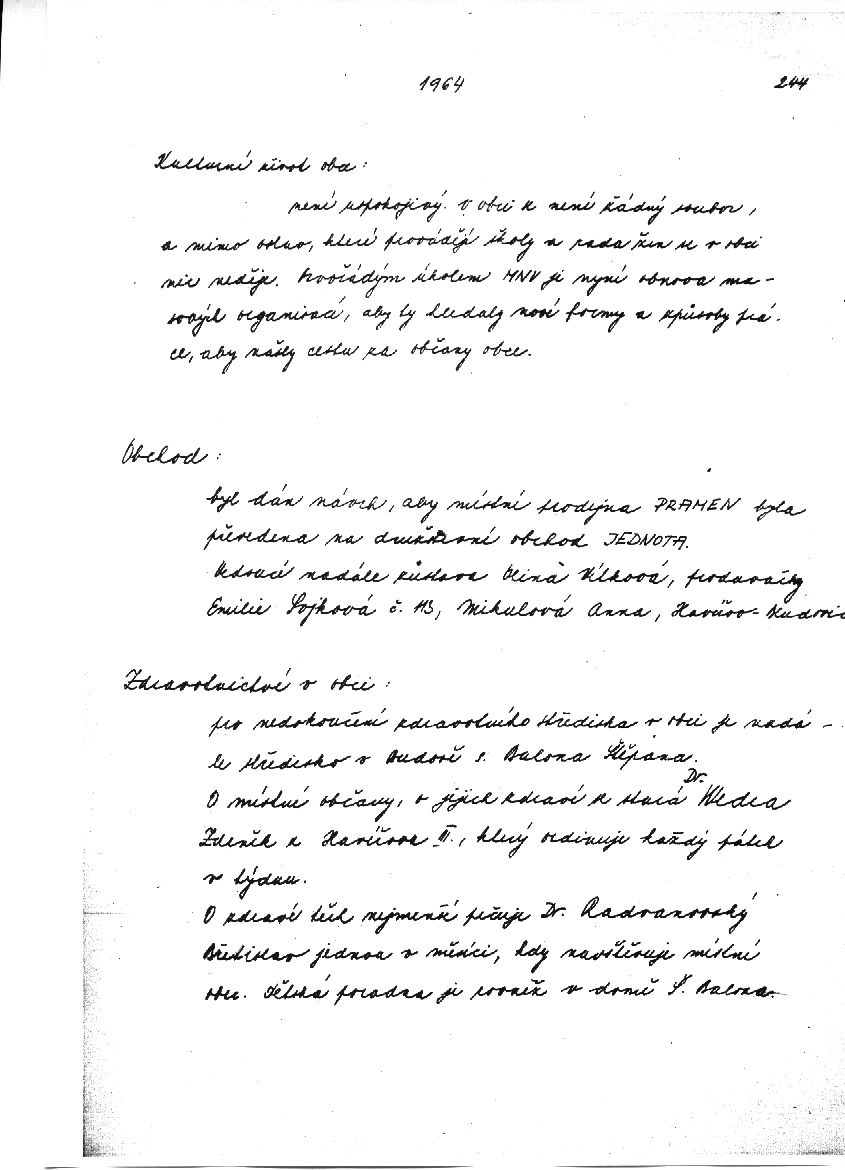 1964
244
Kulturní život obce :
není uspokojivý. V obci není žádný soubor,
a mimo oslav, které provádějí školy a rada žen se v obci
nic neděje. Prvořadým úkolem MNV je nyní obnova ma-
sových organisací, aby ty hledaly nové formy a způsoby prá-
ce, aby našly cestu ka občany obce.
Obchod :
byl dán návrh, aby místní prodejna PRAMEN byla
převedena na družstevní obchod JEDNOTA.
Vedoucí nadále zůstává Vlková, prodavačky
Emilie Sojková č. 113, Mikulová Anna, Havířov-
Zdravotnictví v obci :
pro nedokončení zdravotního střediska v obci je nadá-
le středisko v budově s. Balona Štěpána.
O místní občany, o jejich zdraví se stará Dr. Wedra
Zdeněk z Havířova III., který ordinuje každý pátek
v týdnu.
O zdraví těch nejmenší pečuje Dr. Radvanovský
Břetislav jednou v měsíci, kdy navštěvuje místní
obec. Dětská poradna je rovněž v domě Š. Balona.